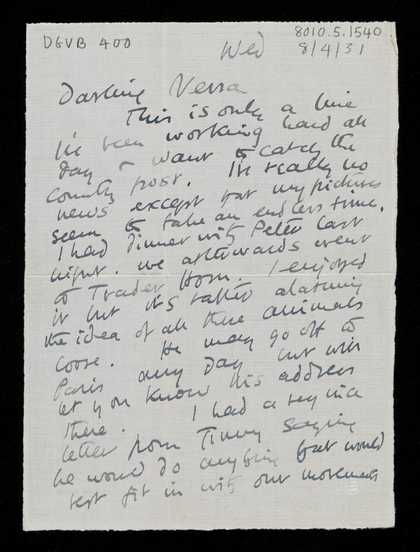 DGVB 400
8010.5.1540
Wed
8/4/31
Darling Nessa
This is only a line
I've been working hard all
day & want to catch the
country post. I've really no
news except that my pictures
seem to take an endless time.
I had dinner with Peter last
night. we afterwards went
to Trader Horn. I enjoyed
it but it's rather alarming
the idea of all those animals
loose. He may go off to
Paris any day but will
let you know his address
there. I had a very nice
letter from Timmy saying
he would do anything that would
best fit in with our movements